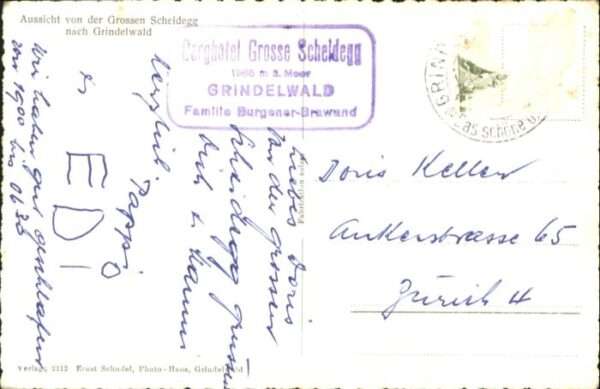 Aussicht von der Grossen Scheidegg
nach Grindelwald
Berghotel Grosse Scheidegg
1966 m ü. Meer
GRINDELWALD
Familie Burgener-Brawand
GRIN
das schöne
Liebes Doris
Von der grossen
Scheidegg grüssen
Dich
herzlich Pappi
EDI
Wir haben gut geschlafen
von 1900 bis 06
Doris Keller
Ankerstrasse 65
Zürich 4
Verlag, 2112 Ernst Schudel, Photo-Haus, Grindelwald